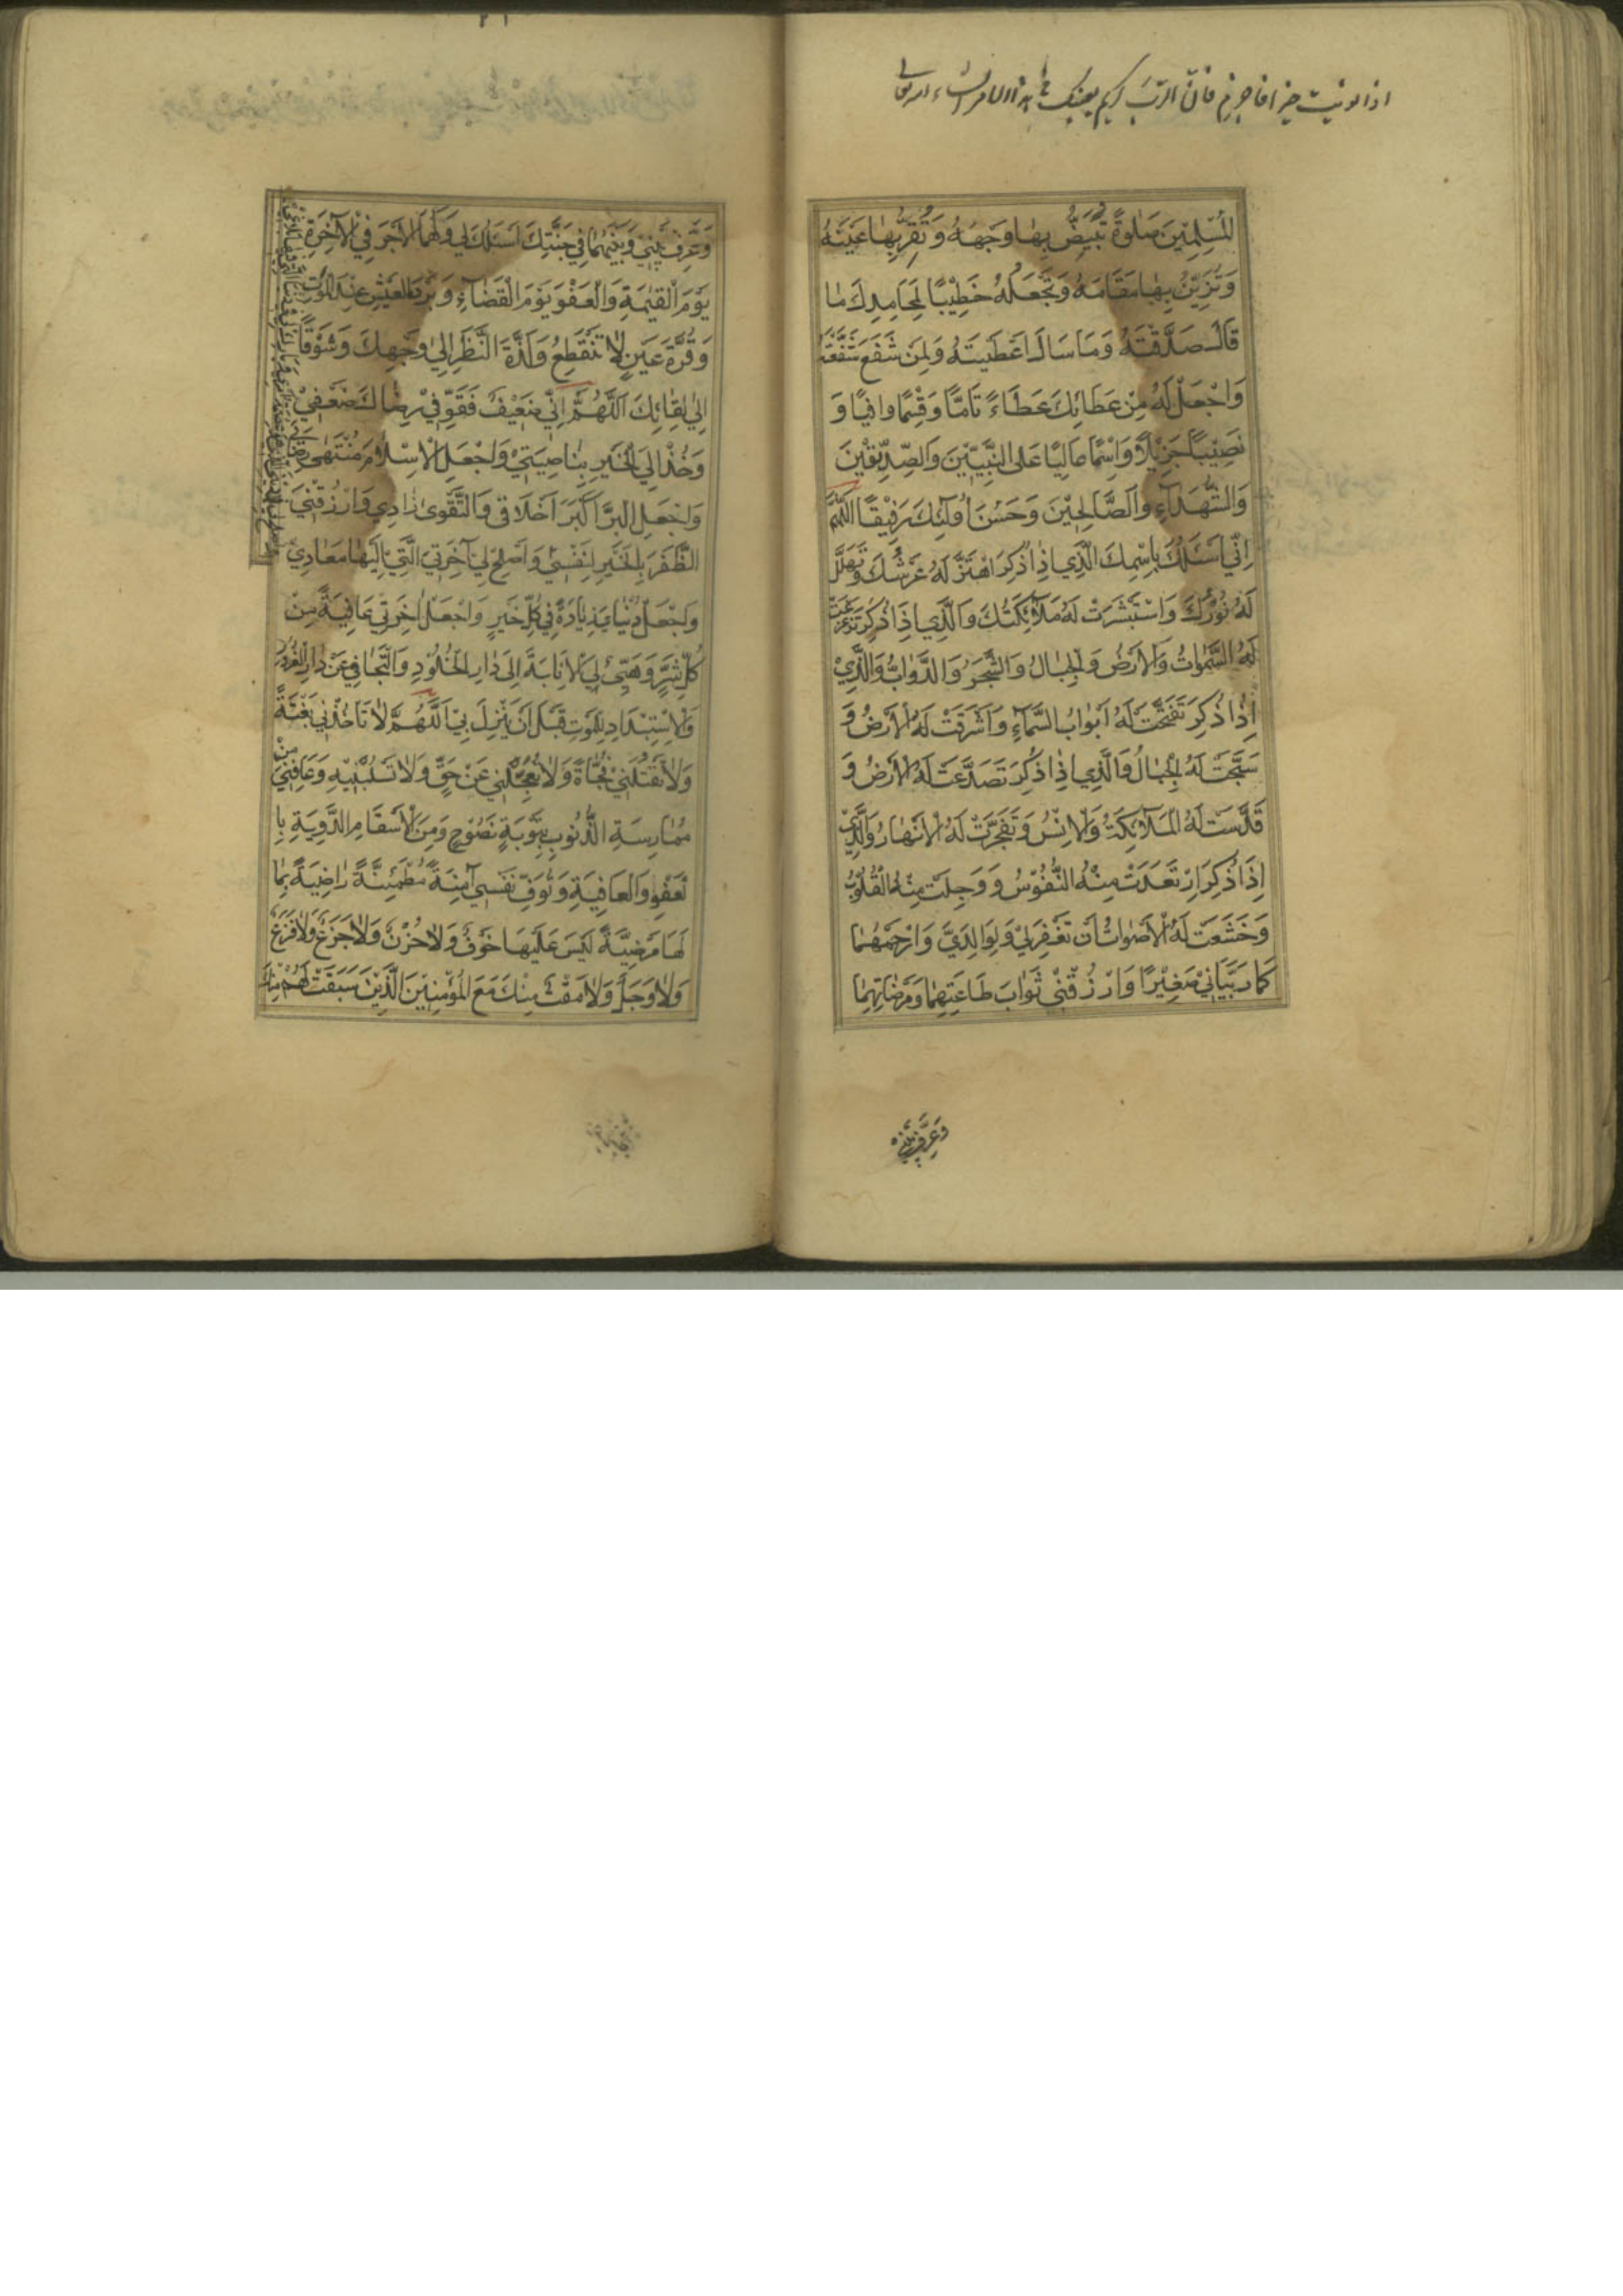 اذا نويت خيرا فان الرب كريم يعينك
المُسْلِمِينَ صَلٰوةً تُبَيِّضُ بِهٰا وَجْهَهُ وَ تُقِرُّ بِهٰا عَيْنَهُ
وَتُزَيِّنُ بِهٰا مَقٰامَهُ وَتَجْعَلُهُ خَطِيْبًا لِمَحٰامِدِكَ مٰا
قٰالَ صَدَّقْتَهُ وَمٰا سَاَلَ اَعْطَيْتَهُ وَلِمَنْ شَفَعَ شَفَّعْتَهُ
وَاجْعَلْ لَهُ مِنْ عَطٰائِكَ عَطٰاءً تٰامًّا وَقِسْمًا وافِيًا وَ
نَصِيْبًا جَزِيْلًا وَاسْمًا عٰالِيًا عَلَى النَّبِيّيْنَ وَالصِّدِّيْقِيْنَ
وَالشُّهَدٰآءِ وَالصّٰالِحِيْنَ وَحَسُنَ اُولٰئِكَ رَفِيْقًا اَللّٰهُمَّ
اِنِّي اَسْئَلُكَ بِاسْمِكَ الَّذِي اِذٰا ذُكِرَ اهْتَزَّ لَهُ عَرْشُكَ وَتَهَلَّلَ
لَهُ نُوْرُكَ وَاسْتَبْشَرَتْ لَهُ مَلٰآئِكَتُكَ وَالَّذِي اِذٰا ذُكِرَ تَزَعْزَعَتْ
لَهُ السَّمٰوٰاتُ وَالْاَرْضُ وَالْجِبٰالُ وَالشَّجَرُ وَالدَّوٰابُّ وَالَّذِيْ
اِذٰا ذُكِرَ تَفَتَّحَتْ لَهُ اَبْوٰابُ السَّمٰآءِ وَاَشْرَقَتْ لَهُ الْاَرْضُ وَ
سَبَّحَتْ لَهُ الْجِبٰالُ وَالَّذِي اِذٰا ذُكِرَ تَصَدَّعَتْ لَهُ الْاَرْضُ وَ
قَدَّسَتْ لَهُ الْمَلٰآئِكَةُ وَالْاِنْسُ وَتَفَجَّرَتْ لَهُ الْاَنْهٰارُ وَالَّذِيْ
اِذٰا ذُكِرَ ارْتَعَدَتْ مِنْهُ النُّفُوْسُ وَ وَجِلَتْ مِنْهُ الْقُلُوْبُ
وَخَشَعَتْ لَهُ الْاَصْوٰاتُ اَنْ تَغْفِرَ لِيْ وَلِوٰالِدَيَّ وَارْحَمْهُمٰا
كَمٰا رَبَّيٰانِيْ صَغِيْرًا وَارْزُقْنِيْ ثَوٰابَ طٰاعَتِهِمٰا وَمَرْضٰاتِهِمٰا
وَعَرِّفْ بَيْنِي
وَعَرِّفْ بَيْنِي وَبَيْنَهُمٰا فِي جَنَّتِكَ اَسْئَلُكَ لِي وَلَهُمَا الْاَجْرَ فِي الْاٰخِرَةِ
يَوْمَ الْقِيٰمَةِ وَالْعَفْوَ يَوْمَ الْقَضٰآءِ وَبَرْدَ الْعَيْشِ عِنْدَ الْمَوْتِ
وَقُرَّةَ عَيْنٍ لٰا تَنْقَطِعُ وَلَذَّةَ النَّظَرِ اِلٰي وَجْهِكَ وَشَوْقًا
اِلٰي لِقٰائِكَ اَللّٰهُمَّ اِنِّي ضَعِيْفٌ فَقَوِّ فِيْ رِضٰاكَ ضَعْفِيْ
وَخُذْ اِلَي الْخَيْرِ بِنٰاصِيَتِيْ وَاجْعَلِ الْاِسْلٰامَ مُنْتَهٰى رِضٰاي
وَاجْعَلِ الْبِرَّ اَكْبَرَ اَخْلٰاقِي وَالتَّقْوٰى زٰادِي وَارْزُقْنِيَ
الظَّفَرَ بِالْخَيْرِ لِنَفْسِيْ وَاَصْلِحْ لِيْ اٰخِرَتِيَ الَّتِيْ اِلَيْهٰا مَعٰادِيْ
وَاجْعَلْ دُنْيٰايَ زِيٰادَةً فِي كُلِّ خَيْرٍ وَاجْعَلْ اٰخِرَتِي عٰافِيَةً مِنْ
كُلِّ شَرٍّ وَهَيِّئْ لِيَ الْاِنٰابَةَ اِلٰى دٰارِ الْخُلُوْدِ وَالتَّجٰافِيَ عَنْ دٰارِ الْغُرُوْرِ
وَالْاِسْتِعْدٰادَ لِلْمَوْتِ قَبْلَ اَنْ يَنْزِلَ بِيْ اَللّٰهُمَّ لٰا تَاْخُذْنِي بَغْتَةً
وَلٰا تَقْتُلْنِيْ فُجْاَةً وَلٰا تُعْجِلْنِي عَنْ حَقٍّ وَلٰا تَسْلُبْنِيْهِ وَعٰافِنِيْ مِنْ
مُمٰارَسَةِ الذُّنُوْبِ بِتَوْبَةٍ نَصُوْحٍ وَمِنَ الْاَسْقٰامِ الدَّوِيَةِ بِا
لْعَفْوِ وَالْعٰافِيَةِ وَتَوَفَّ نَفْسِي اٰمِنَةً مُطْمَئِنَّةً رٰاضِيَةً بِمٰا
لَهٰا مَرْضِيَّةً لَيْسَ عَلَيْهٰا خَوْفٌ وَلٰا حُزْنٌ وَلٰا جَزَعٌ وَلٰا فَزَعٌ
وَلٰا وَجَلٌ وَلٰا مَقْتٌ مِنْكَ مَعَ الْمُؤْمِنِيْنَ الَّذِيْنَ سَبَقَتْ لَهُمْ مِنْكَ